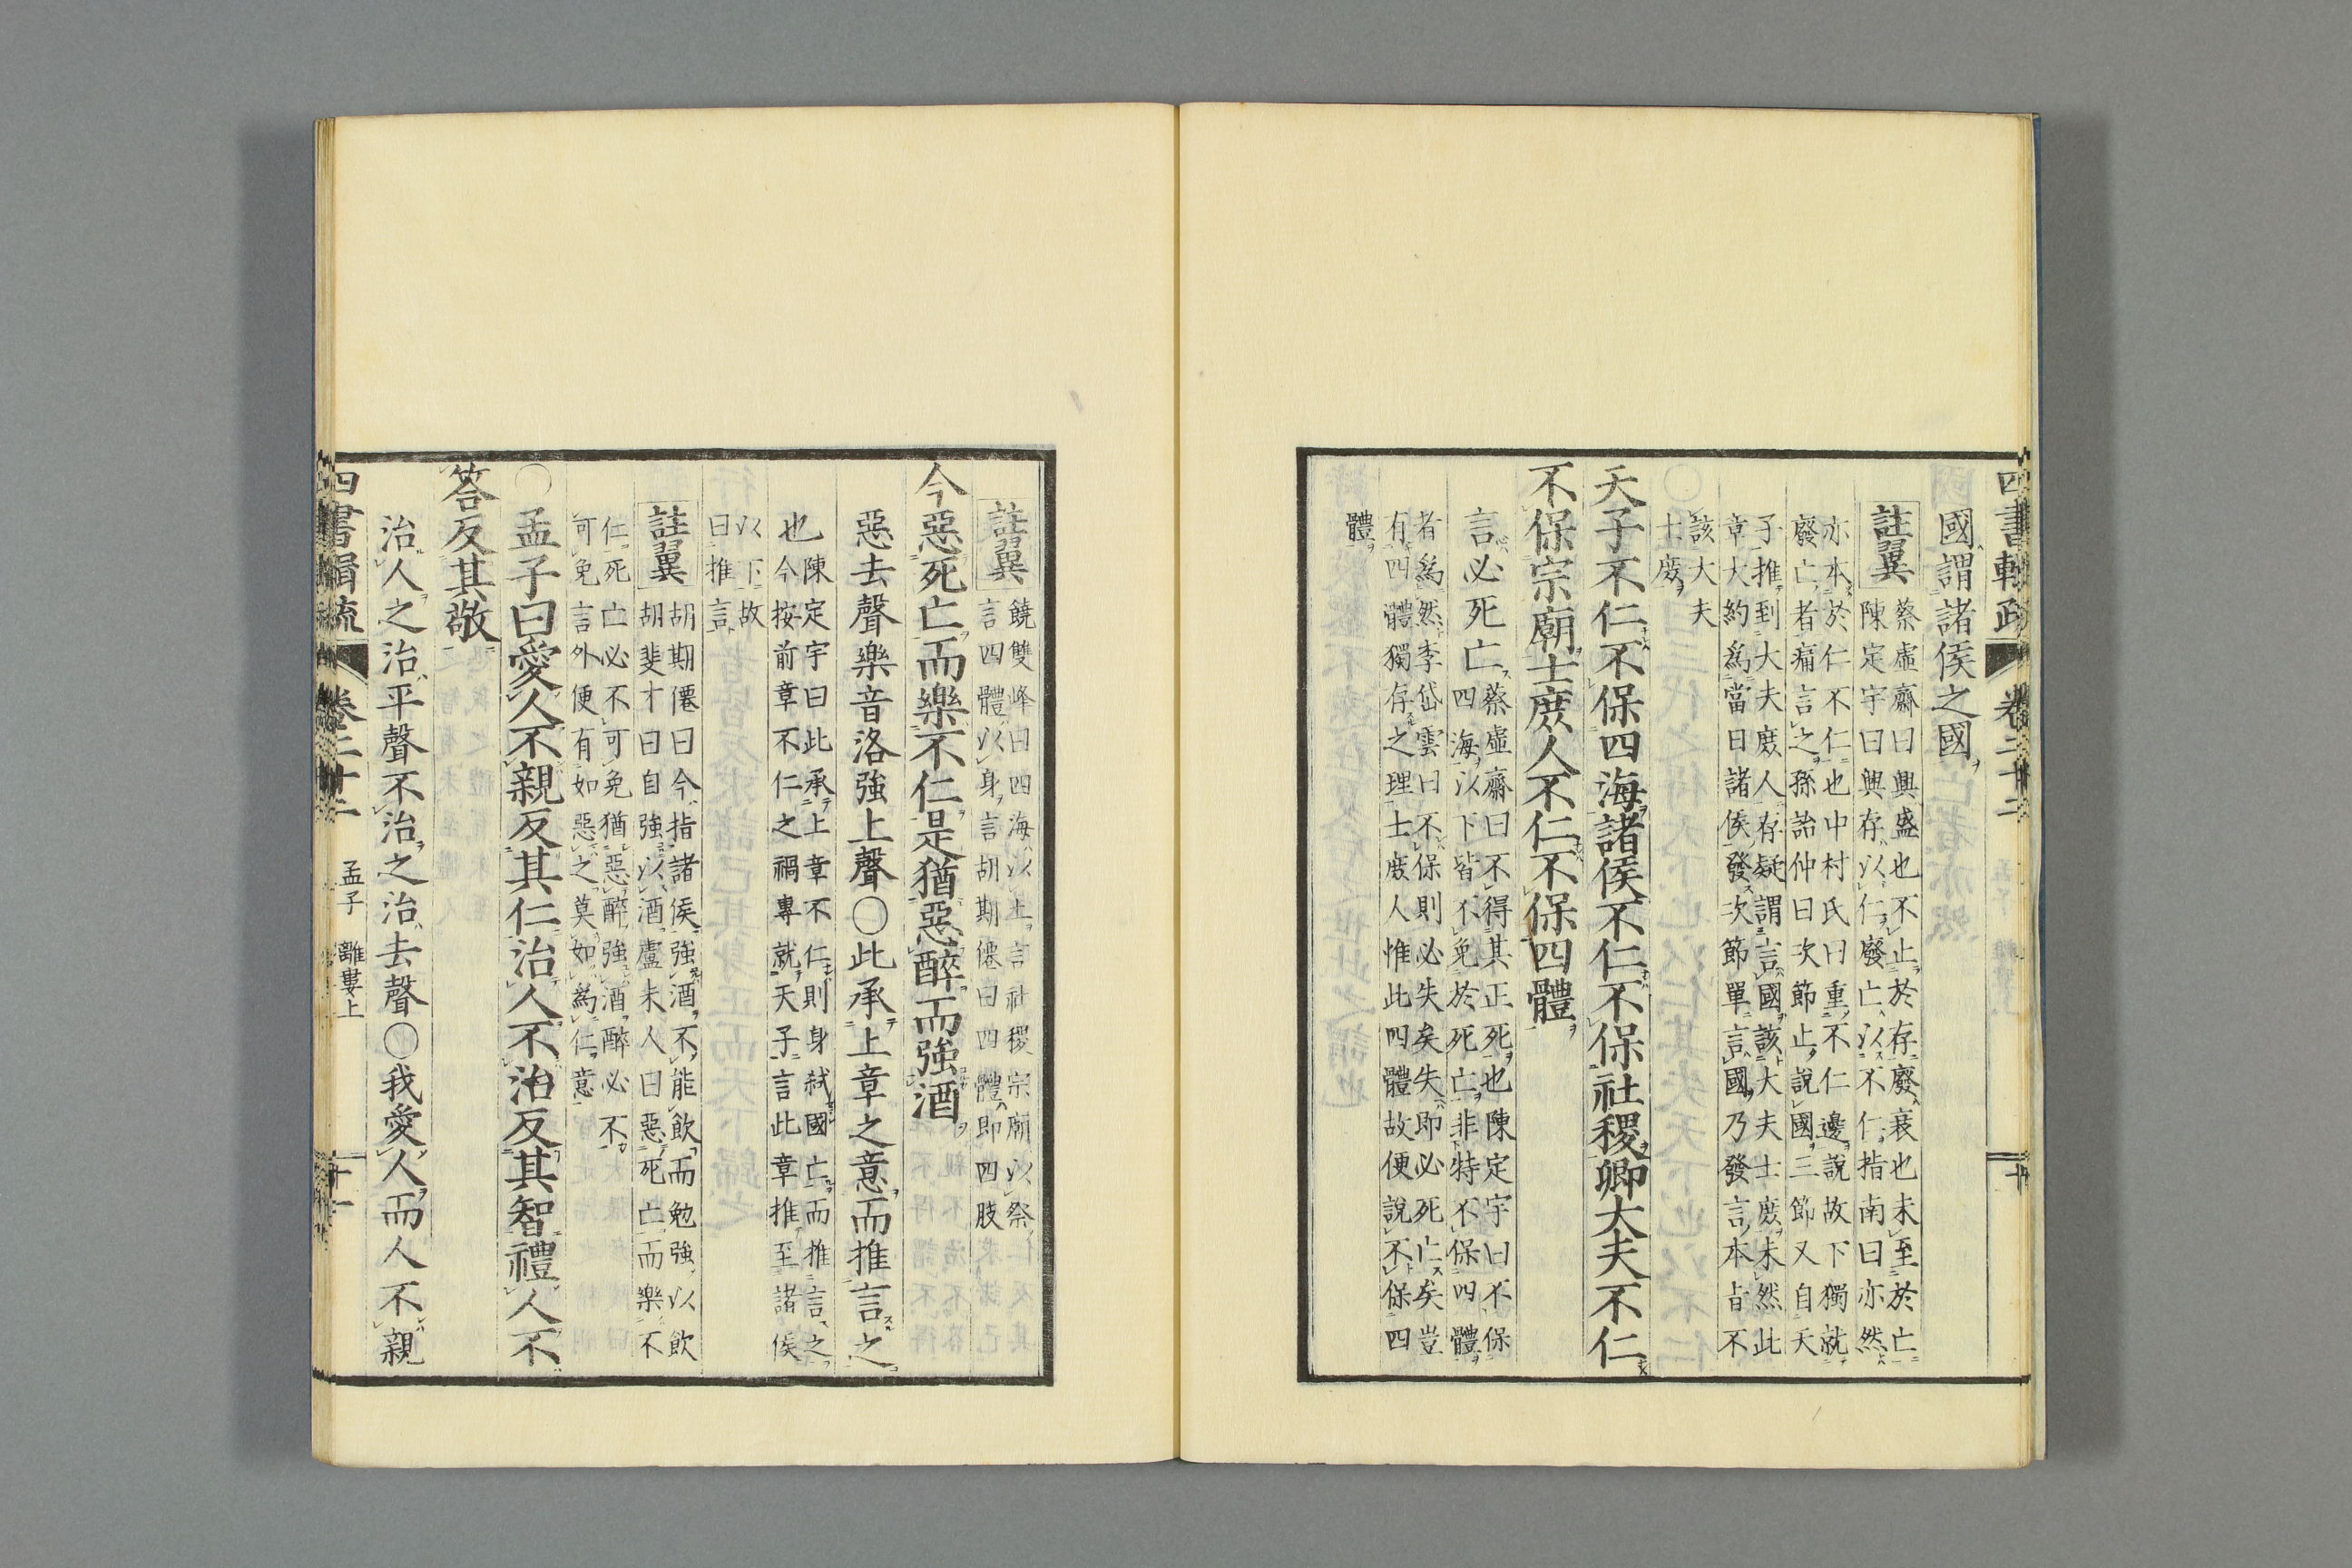 國謂諸侯之國
註翼
蔡虛齋曰興盛也不止於存廢衰也未至於亡
陳定宇曰興存以仁廢亡以不仁指南曰亦然
亦本於仁不仁也中村氏曰重不仁邊說故下獨就
廢亡者痛言之孫詒仲曰次節止說國三節又自天
子推到大夫庶人存疑謂言國該大夫士庶未然此
章大約為當日諸侯發次節單言國乃發言本旨不
該大夫
士庶
天子不仁不保四海諸侯不仁不保社稷卿大夫不仁
不保宗廟士庶人不仁不保四體
言必死亡
蔡虛齋曰不得其正死也陳定宇曰不保
四海以下皆不免於死亡非特不保四體
者為然李岱雲曰不保則必失矣失即必死亡矣豈
有四體獨存之理士庶人惟此四體故便說不保四
體
四書輯疏 卷二十二 十
註翼
饒雙峰曰四海以土言社稷宗廟以祭
言四體以身言胡期僊曰四體即四肢
今惡死亡而樂不仁是猶惡醉而強酒
惡去聲樂音洛強上聲○此承上章之意而推言之
也
陳定宇曰此承上章不仁則身弒國亡而推言之
今按前章不仁之禍專就天子言此章推至諸侯
以下故
曰推言
註翼
胡期僊曰今指諸侯強酒不能飲而勉強以飲
胡斐才曰自強以酒盧未人曰惡死亡而樂不
仁死亡必不可免猶惡醉強酒醉必不
可免言外便有如惡之莫如為仁意
○孟子曰愛人不親反其仁治人不治反其智禮人不
答反其敬
治人之治平聲不治之治去聲○我愛人而人不親
四書輯疏 卷二十二 孟子 離婁上 十一